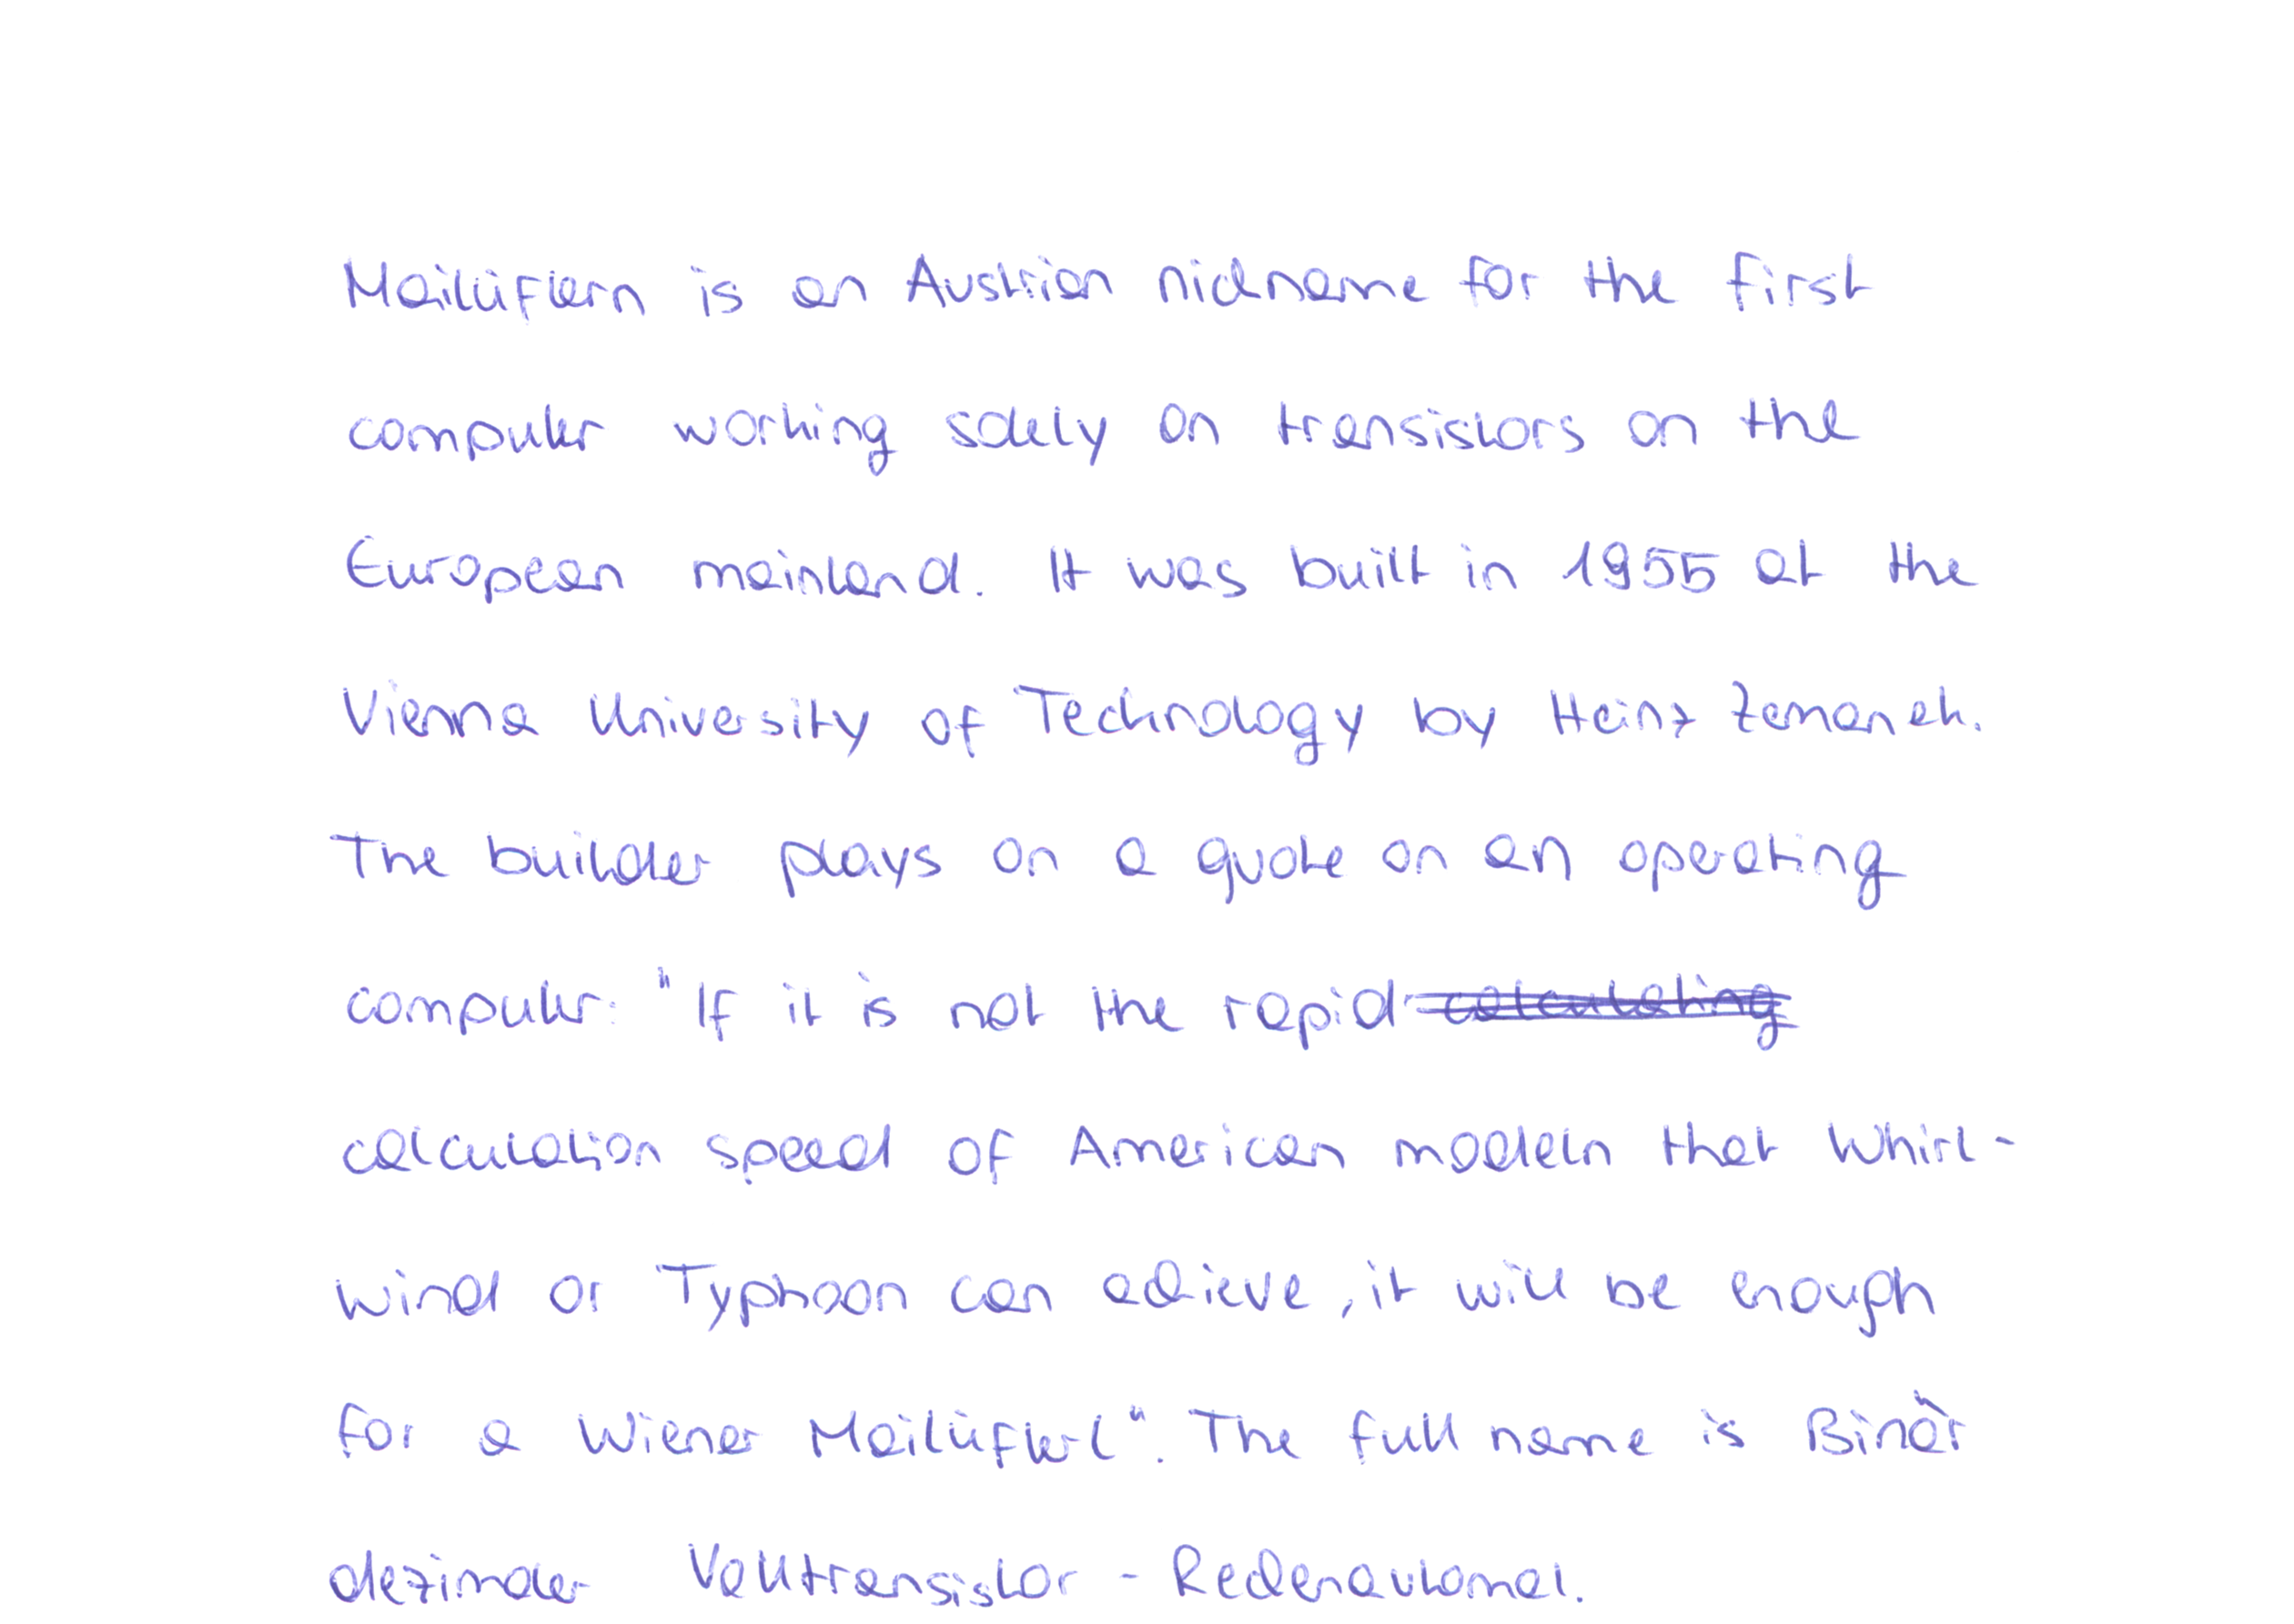 Mailüflern is an Austrian nickname for the first
computer working solely on transistors on the
European mainland. It was built in 1955 at the
Vienna University of Technology by Heinz Zemanek.
The builder plays on a quote on an operating
computer: "If it is not the rapid calculating
calculation speed of American modeln that Whirl-
wind or Typhoon can achieve, it will be enough
for a Wiener Mailüfterl". The full name is Binär
dezimaler Volltransistor-Rechenautomat.